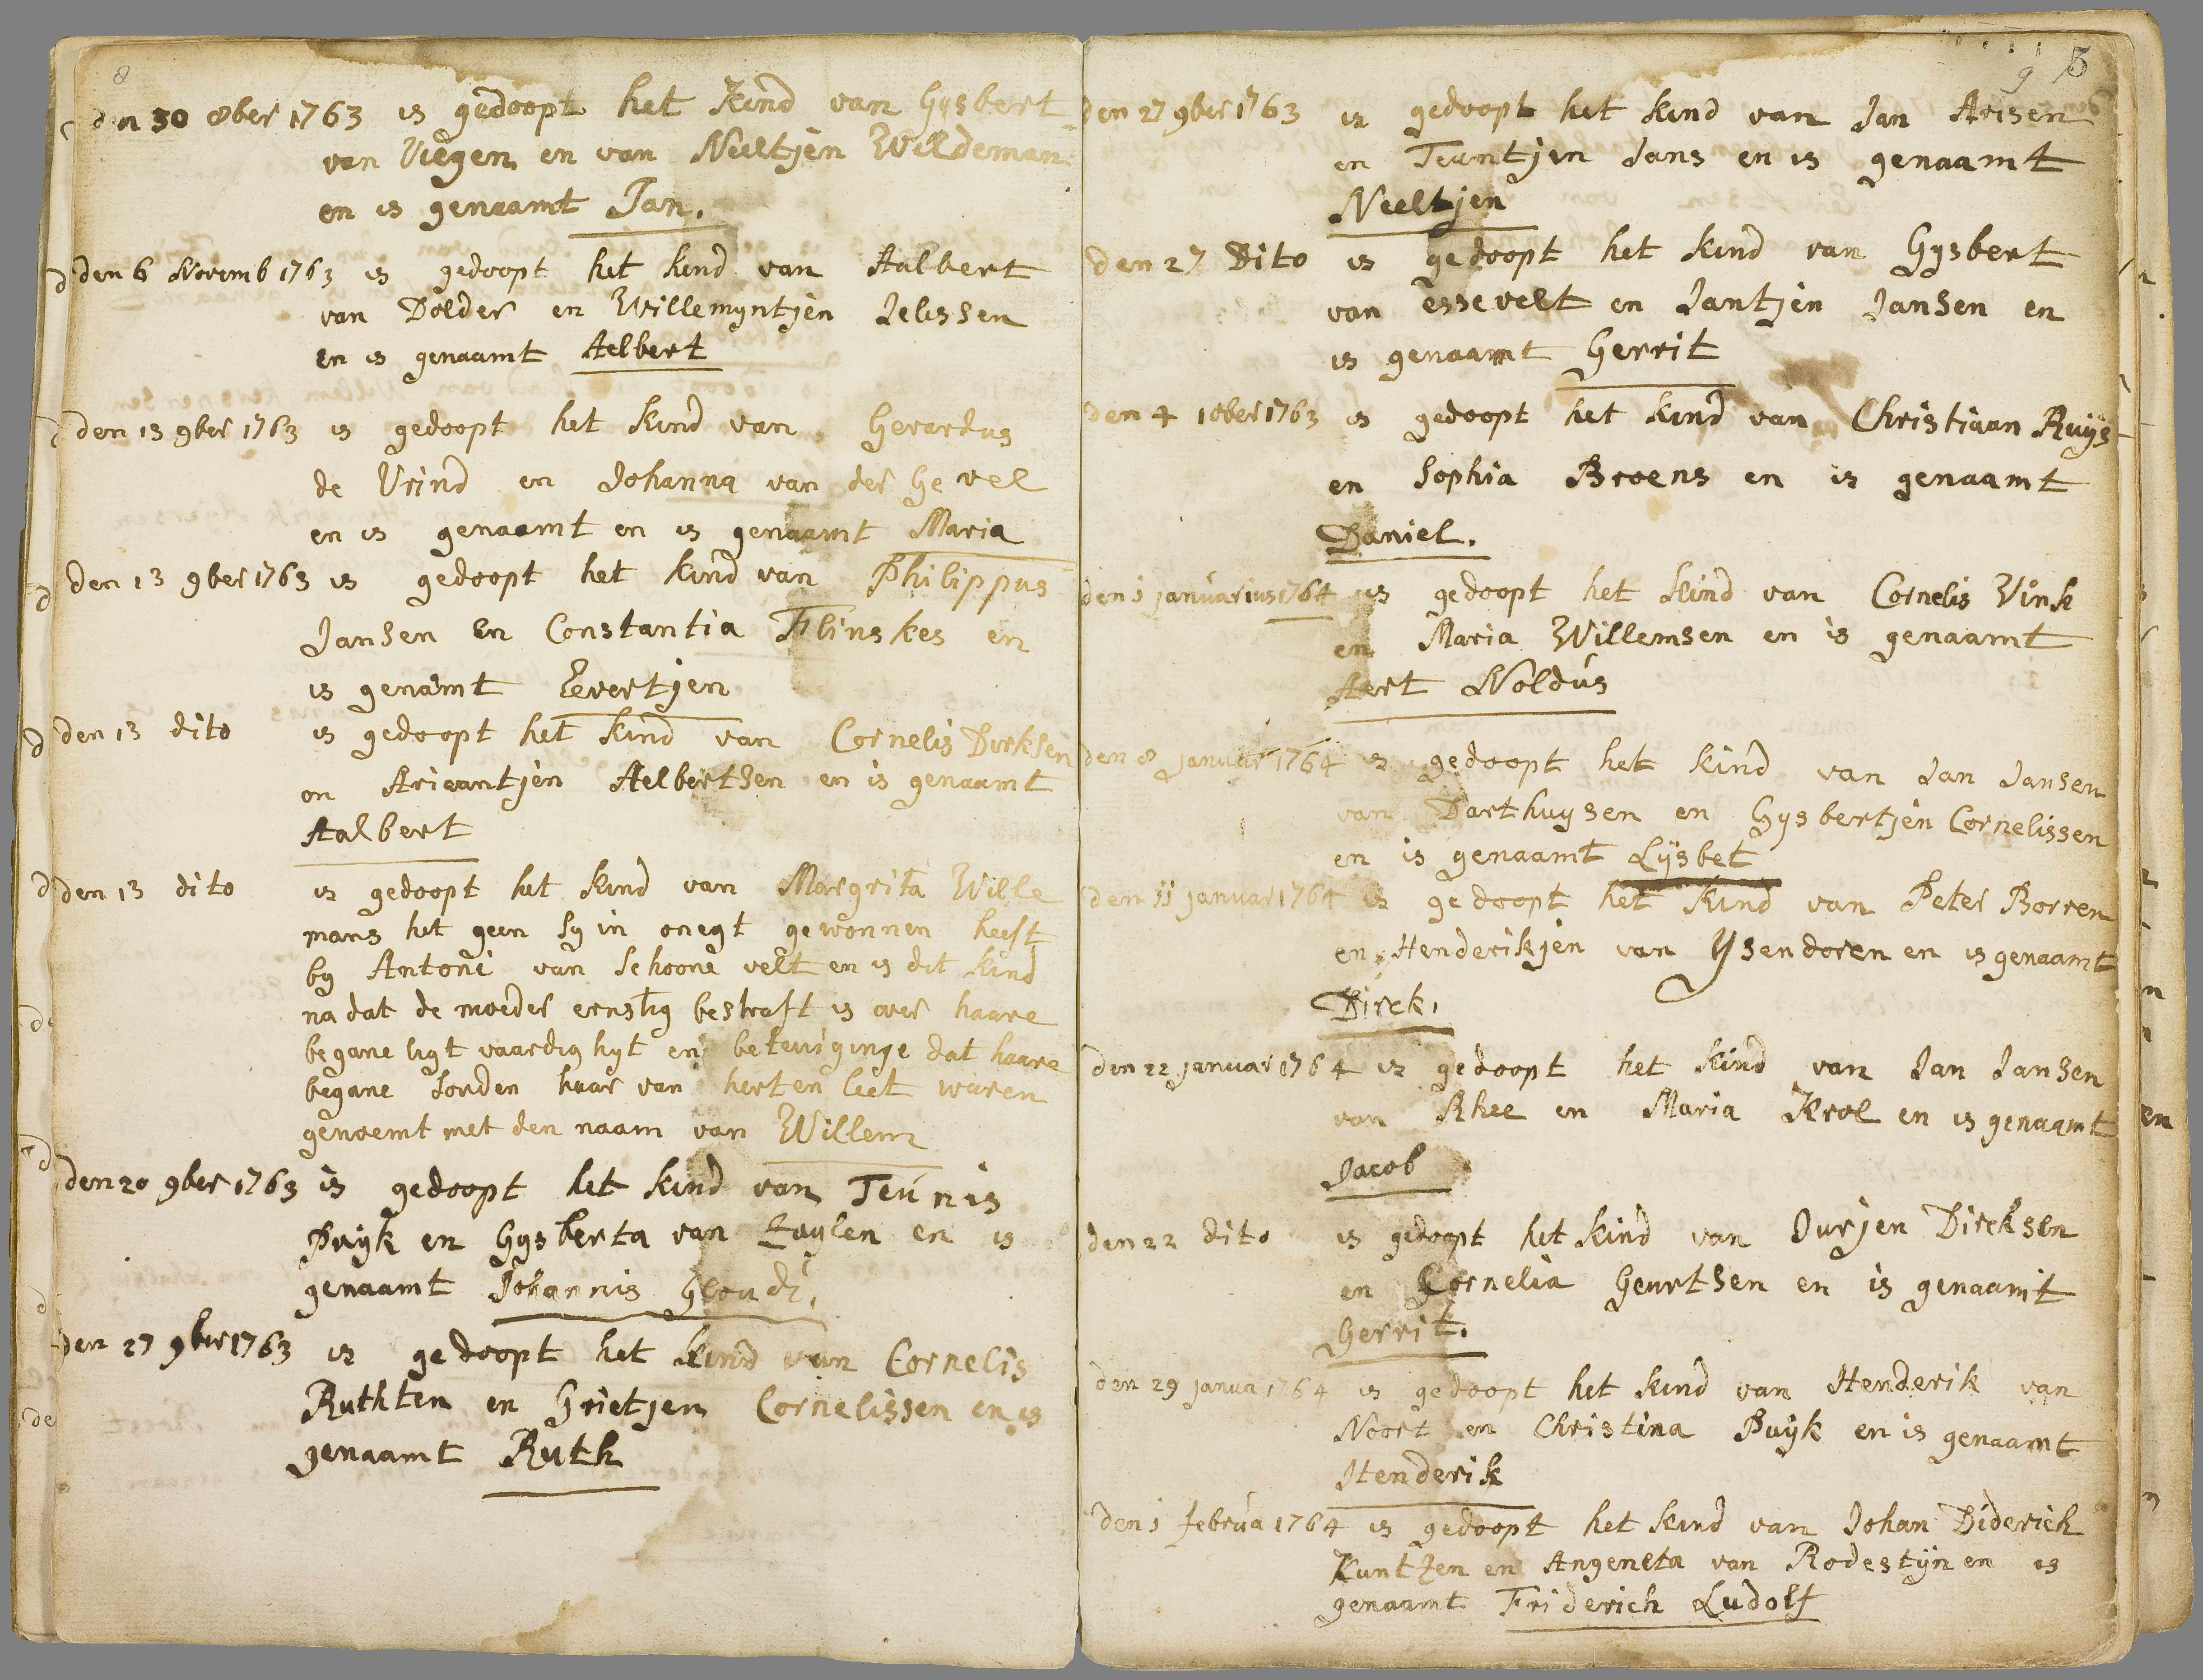 8
den 30 8ber 1763 is gedoopt het kind van Gysbert
van Viegen en van Neeltjen Wildeman
en is genaamt Jan.
den 6 Novemb 1763 is gedoopt het kind van Aalbert
van Dolder en Willemyntjen Jelissen
en is genaamt Aelbert
den 13 9ber 1763 is gedoopt het kind van Gerardus
de Vrind en Johanna van der Gevel
en is genaamt en is genaamt Maria
den 13 9ber 1763 is gedoopt het kind van Philippus
Jansen en Constantia Flinskes en
is genamt Eevertjen
den 13 dito is gedoopt het kind van Cornelis Dirksen
en Ariaantjen Aelbertsen en is genaamt
Aalbert
den 13 dito is gedoopt het kind van Margrita Wille
mans het geen sy in onegt gewonnen heeft
by Antoni van Schoone velt en is dit kind
na dat de moeder ernstig bestraft is over haare
begane ligt vaardig hyt en betuiginge dat haare
begane sonden haar van herten leet waren
genoemt met den naam van Willem
den 20 9ber 1763 is gedoopt het kind van Teunis
Puyk en Gysberta van Zuylen en is
genaamt Johannis Gloudi.
den 27 9ber 1763 is gedoopt het kind van Cornelis
Ruthten en Grietjen Cornelissen en is
genaamt Ruth
9 5
den 27 9ber 1763 is gedoopt het kind van Jan Arisen
en Teuntjen Jans en is genaamt
Neeltjen
den 27 Dito is gedoopt het kind van Gysbert
van Essevelt en Jantjen Jansen en
is genaamt Gerrit
den 4 10ber 1763 is gedoopt het kind van Christiaan Ruys
en Sophia Broens en is genaamt
Daniel.
den 1 januarius 1764 is gedoopt het kind van Cornelis Vink
en Maria Willemsen en is genaamt
Aert Noldus
den 8 januar 1764 is gedoopt het kind van Jan Jansen
van Darthuysen en Gysbertjen Cornelissen
en is genaamt Lysbet
den 11 januar 1764 is gedoopt het kind van Peter Borren
en Henderikjen van Ysendoren en is genaamt
Dirck.
den 22 januar 1764 is gedoopt het kind van Jan Jansen
van Rhee en Maria Krol en is genaamt
Jacob
den 22 dito is gedoopt het kind van Jurjen Dircksen
en Cornelia Geurtsen en is genaamt
Gerrit.
den 29 janua 1764 is gedoopt het kind van Henderik van
Noort en Christina Puyk en is genaamt
Henderik
den 1 februa 1764 is gedoopt het kind van Johan Diderich
Kuntzen en Angeneta van Rodestyn en is
genaamt Friderich Ludolf